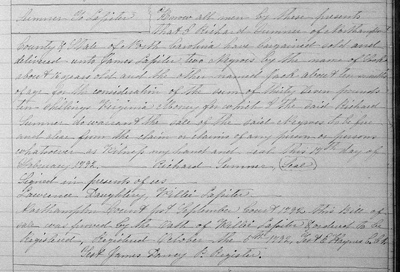 Sumner To Lassiter Know all men by these presents
that I Richard Sumner of Northampton
County & State of North Carolina have bargained sold and
delivered unto James Lassiter two negroes by the name of
about 18 years old and the other named Jack about ten months
of age for the consideration of the sum of thirty seven pounds
ten shillings Virginia Money for which I the said Richard
Sumner do warrant the sale of the said negroes to be free
and clear from the claim or claims of any person or persons
whatsoever as Witness my hand and seal this 13th day of
February 1792. Richard Sumner (Seal)
Signed in presents of us
Lawrence Daughtry Willis Lassiter
Northampton County Sct September Court 1792 This Bill of
sale was proved by the oath of Willis Lassiter & ordered to be
Registered, Registered October the 5th 1792. Test E Haynes C.C.
Test James Darcey P. Register.